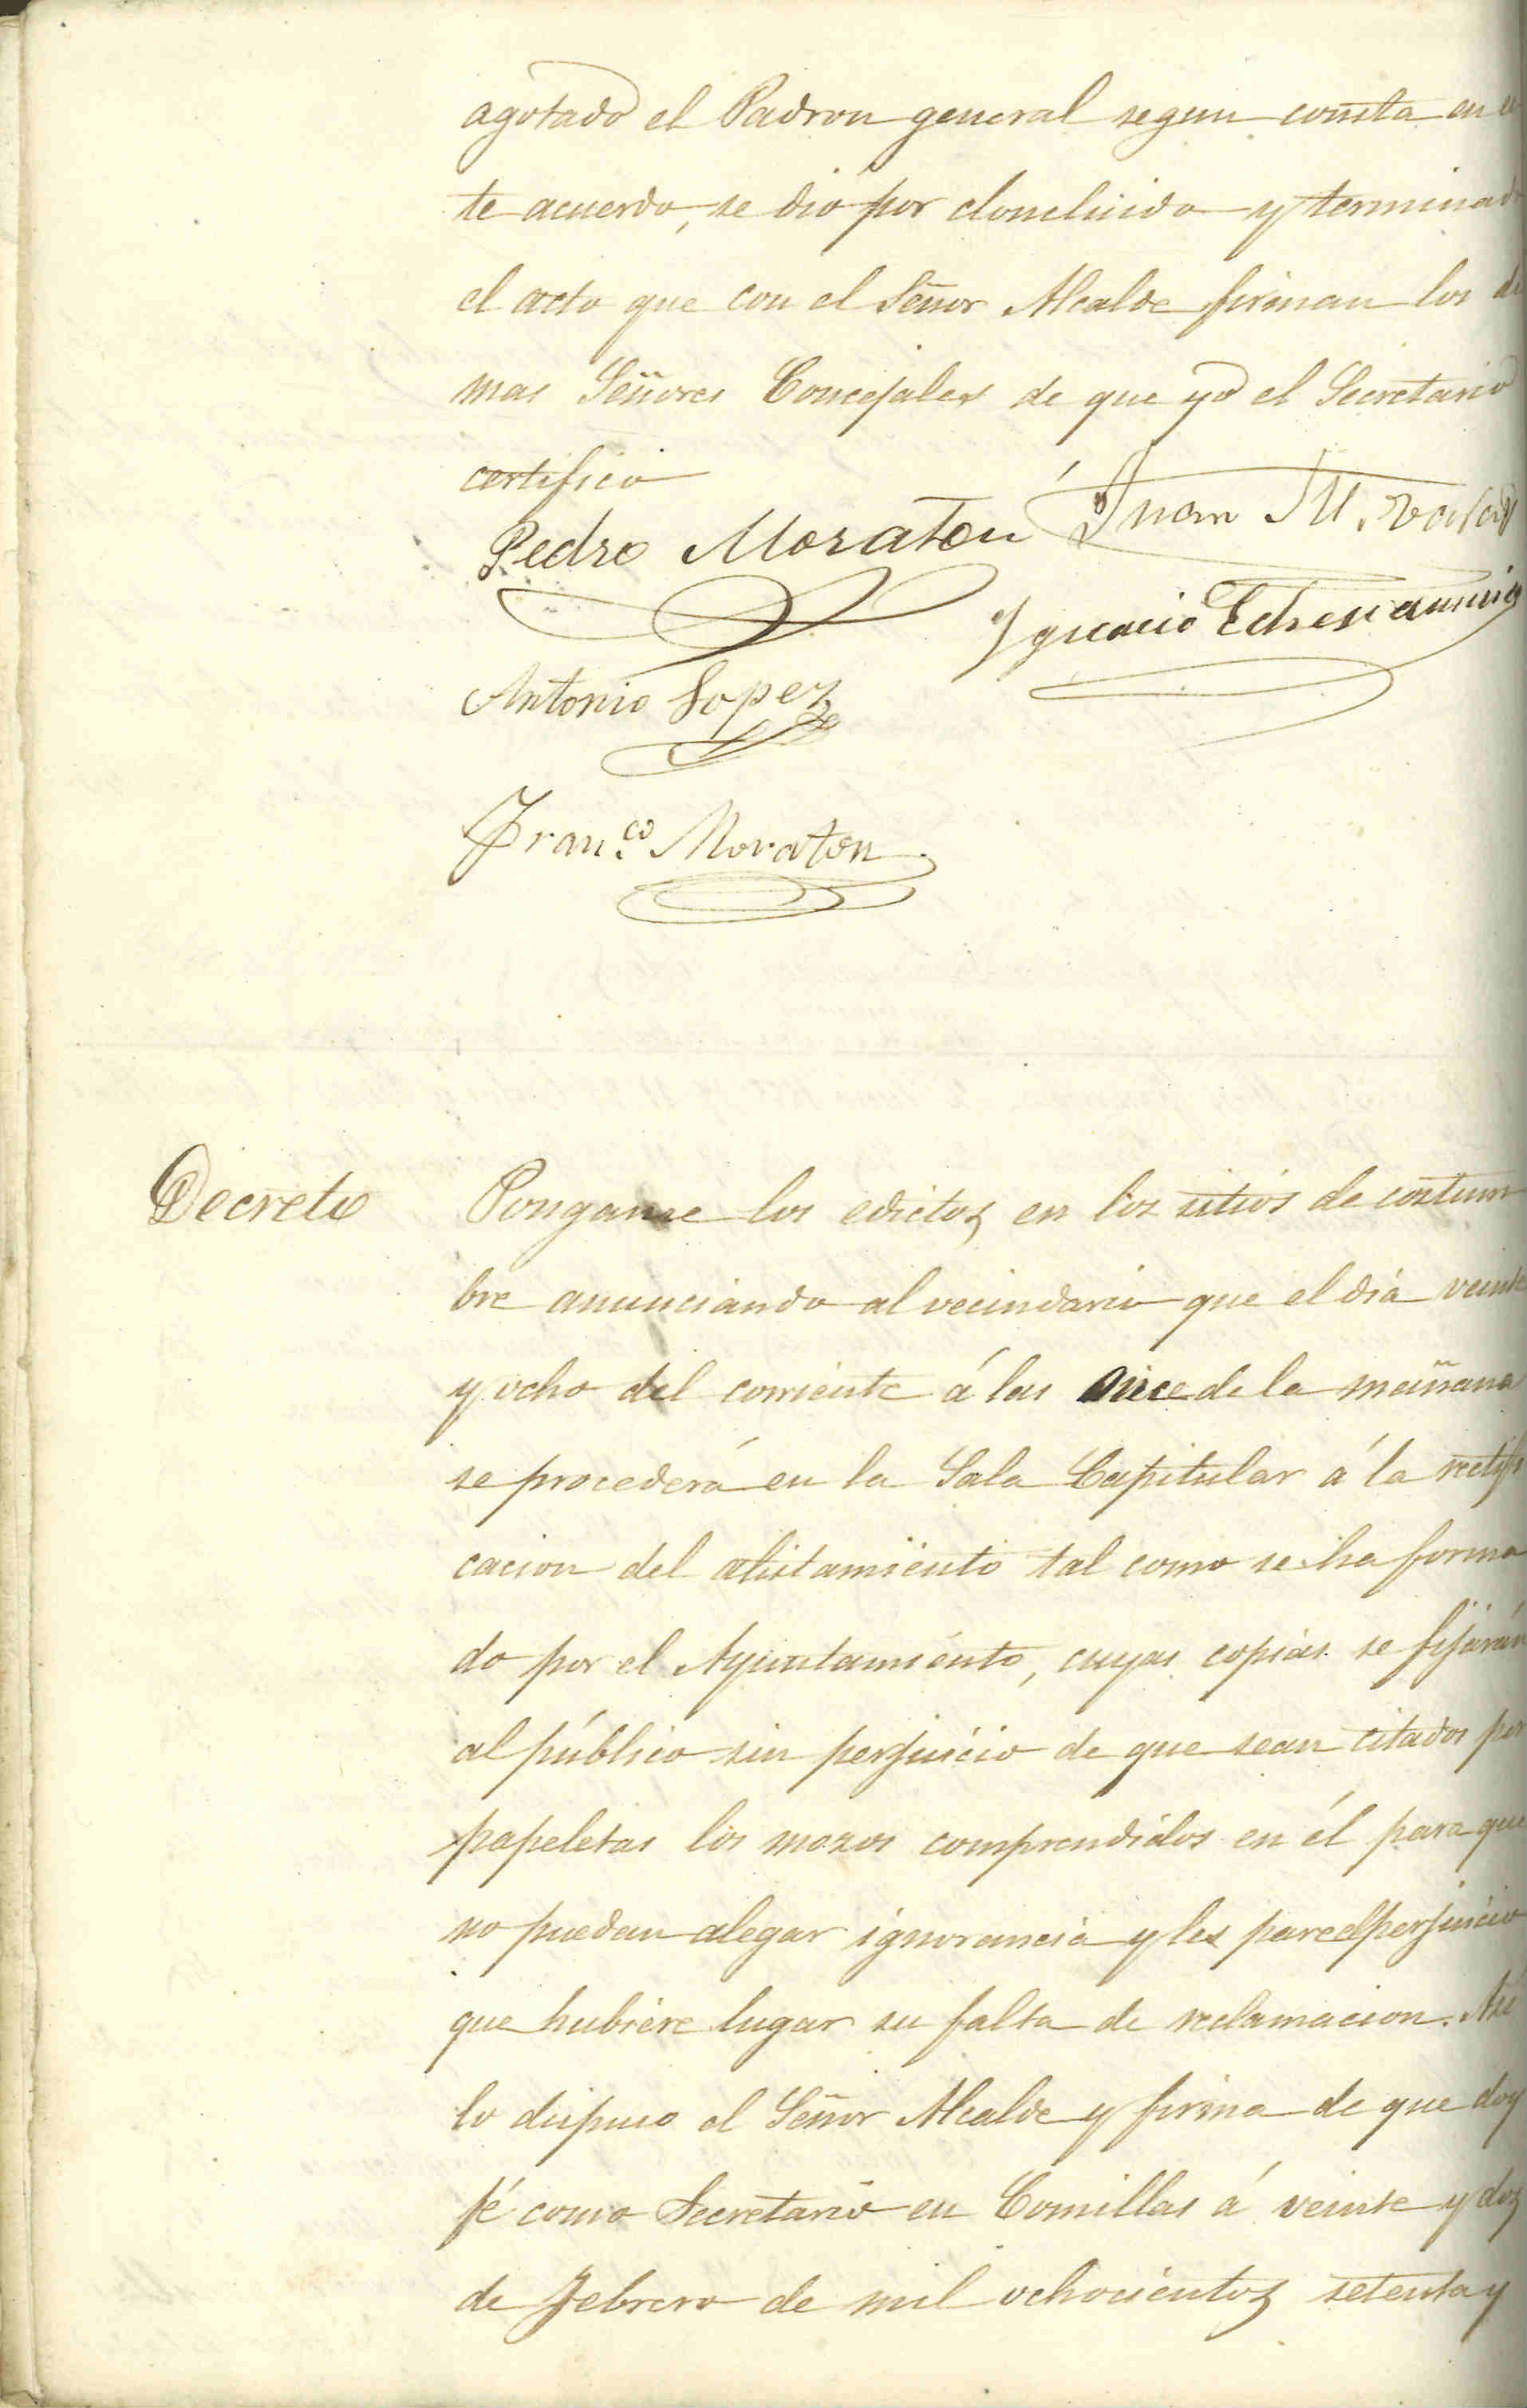 agotado el Padron general segun consta en es
te acuerdo, se dió por cloncluido y terminado
el acto que con el Señor Alcalde firman los de
mas Señores Concejales de que yo el Secretario
certifico
Pedro Moraton Juan M.
Ygnacio
Antonio Lopez
Fran.co Moraton
Decreto
Ponganse los edictos en los sitios de costum
bre anunciando al vecindario que el dia veinte
y ocho del corriente á las once de la mañana
se procederá en la Sala Capitular á la rectifi
cacion del alistamiento tal como se ha forma
do por el Ayuntamiento, cuyas copias se fijarán
al público sin perjuicio de que sean citados por
papeletas los mozos comprendidos en él para que
no puedan alegar ignorancia y les pare el perjuicio
que hubiere lugar su falta de reclamacion. Asi
lo dispuso el Señor Alcalde y firma de que doy
fé como Secretario en Comillas á veinte y dos
de Febrero de mil ochocientos setenta y